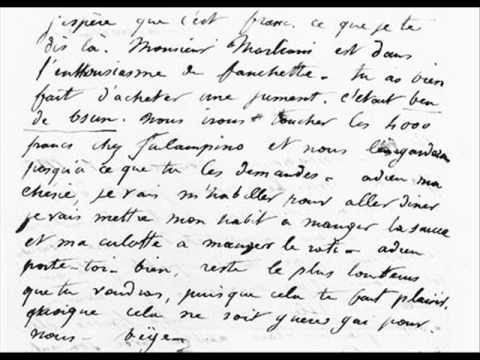 j'espère que c'est franc. ce que je te
dis là. Monsieur est dans
l'enthousiasme de fanchette. tu as bien
fait d'acheter une jument. c'était ben
de bsun. nous vous toucher les 4000
francs chez et nous les gardons
jusqu'à ce que tu les demandes. adieu ma
chérie, je vais m'habiller pour aller diner
je vais mettre mon habit à manger la sauce
et ma culotte à manger le roti. adieu
porte-toi-bien, reste le plus lontems
que tu voudras, puisque cela te fait plaisir,
quoique cela ne soit guères gai pour
nous.